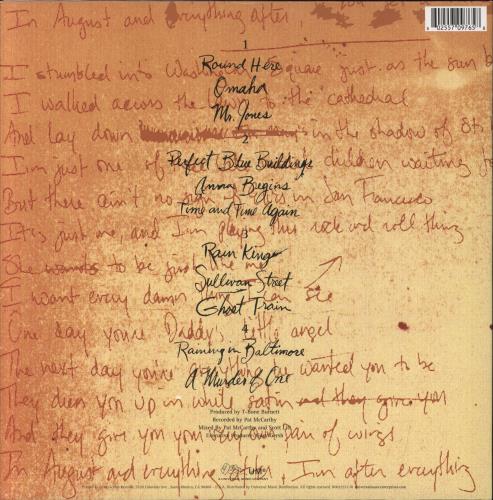 In August and everything after,
6 02557 09765 8
1
I stumbled into Washington square just as the sun b
Round Here
Omaha
I walked across the lawn to the cathedral
Mr. Jones
And lay down in the shadow of St.
2
Perfect Blue Buildings
I'm just one of children waiting for
Anna Begins
But there ain't no in San Francisco
Time and Time Again
It's just me, and I'm playing this rock and roll thing
3
Rain King
She wants to be just like me
Sullivan Street
I want every damn thing I can see
Ghost Train
One day you're Daddy's little angel
4
Raining in Baltimore
The next day you're everything he wanted you to be
A Murder of One
They dress you up in white satin and they give you
Produced by T-Bone Burnett
Recorded by Pat McCarthy
And they give you your own pair of wings
Mixed by Pat McCarthy and Scott Litt
In August and everything after, I'm after everything
UMe